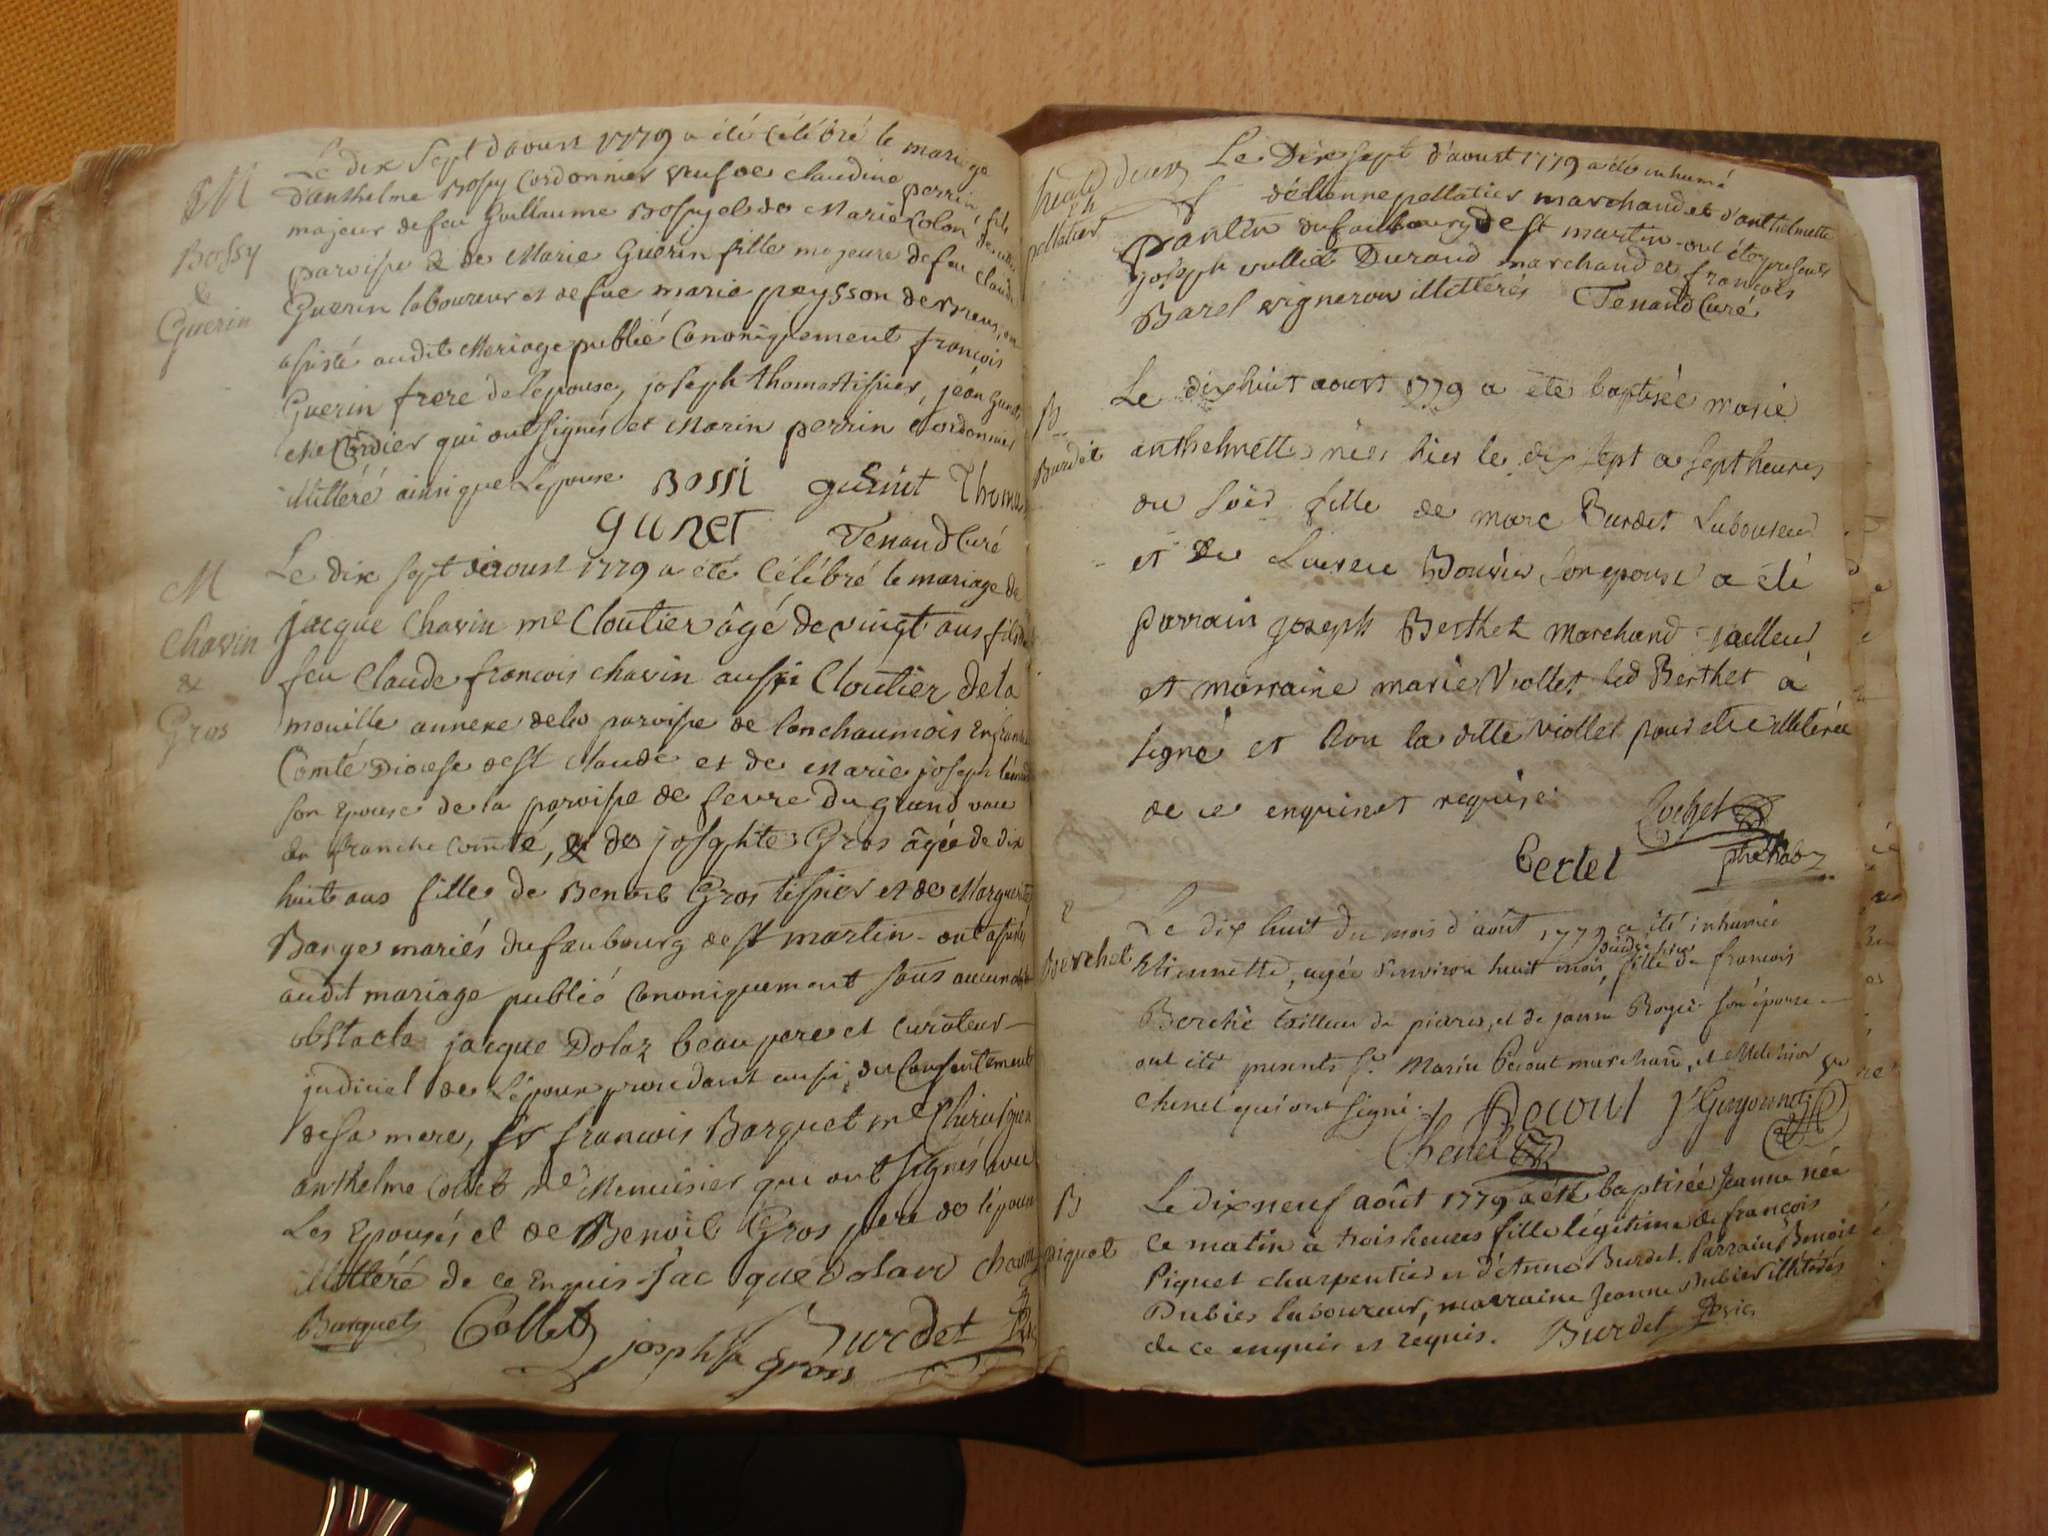 M
Bossy
&
Guerin
Le dix sept daoust 1779 a été Célébré le mariage
d'anthelme Bossy Cordonnier veuf de Claudine perrin, fils
majeur de feu Guillaume Bossy et de Marie Colon de cette
paroisse & de Marie Guerin fille majeure de feu Claude
Guerin laboureur et de fue marie peysson de
assisté audit Mariage publié Canoniquement francois
Guerin frere de lepouse, joseph thomas tissier, jean
Cordier qui ont signés et Marin perrin Cordonnier
illitteré ainsi que Lepouse Bossi guerint Thomas
gunet Tenand Curé
M
Chavin
&
Gros
Le dix sept daoust 1779 a été Célébré le mariage de
jacque Chavin me Cloutier âgé de vingt ans fils de
feu Claude francois chavin aussi Cloutier dela
mouille annexe dela paroisse de Lonchaumois en franche
Comté Diocese de St Claude et de Marie joseph
son Epouse de la paroisse de fevre du grand vau
en franche comté, & de josephte Gros âgée de dix
huit ans fille de Benoit Gros tissier et de Marguerite
Barge mariés du faubourg de St martin - ont assisté
audit mariage publié Canoniquement sans aucun
obstacle jacque Dolaz beau pere et Curateur
judiciel de L'époux procedant aussi du Consentement
de sa mere, francois Barquet me Chirurgien
anthelme Collet me Menuisier qui ont signés avec
Les Epousés et de Benoit Gros pere de lépouse
illitteré de ce Enquis jac que dolard chavin
Barquet Collet joseph Burdet
gross
pellatier
Le Dix sept d'aoust 1779 a été inhumé
d'étienne pellatier marchand et d'anthelmette
pantin du faubourg de St martin - ont été presents
joseph vulliet Durand marchand et francois
Barel vigneron illitterés Tenand Curé
B
Burdet
Le dix huit aoust 1779 a été baptisée marie
anthelmette née hier le dix sept a sept heures
du soir fille de marc Burdet Laboureur
et de Bouvier son epouse a été
parrain joseph Berthet marchand
et marraine marie Viollet led Berthet à
signé et non la ditte viollet pour etre illiterée
de ce enquise et requise.
Cochet
Bertet
Berchet
Le dix huit du mois d'août 1779 a été inhumée
Etiennette, agée d'environ huit mois, fille de francois
Berché tailleur de pierres, et de jeanne Roger son épouse
ont été presents Sr. Marin Becout marchand, et Melchior
Chenel qui ont signé. Becout Guyonnet
Chenel
B
piquet
Le dix neuf août 1779 a été baptisée Jeanne née
ce matin à trois heures fille légitime de françois
Piquet charpentier et d'Anne Burdet. Parrain Benoit
Dubiez laboureur, marraine Jeanne Dubiez illitérés
de ce enquis et requis. Burdet Vic.